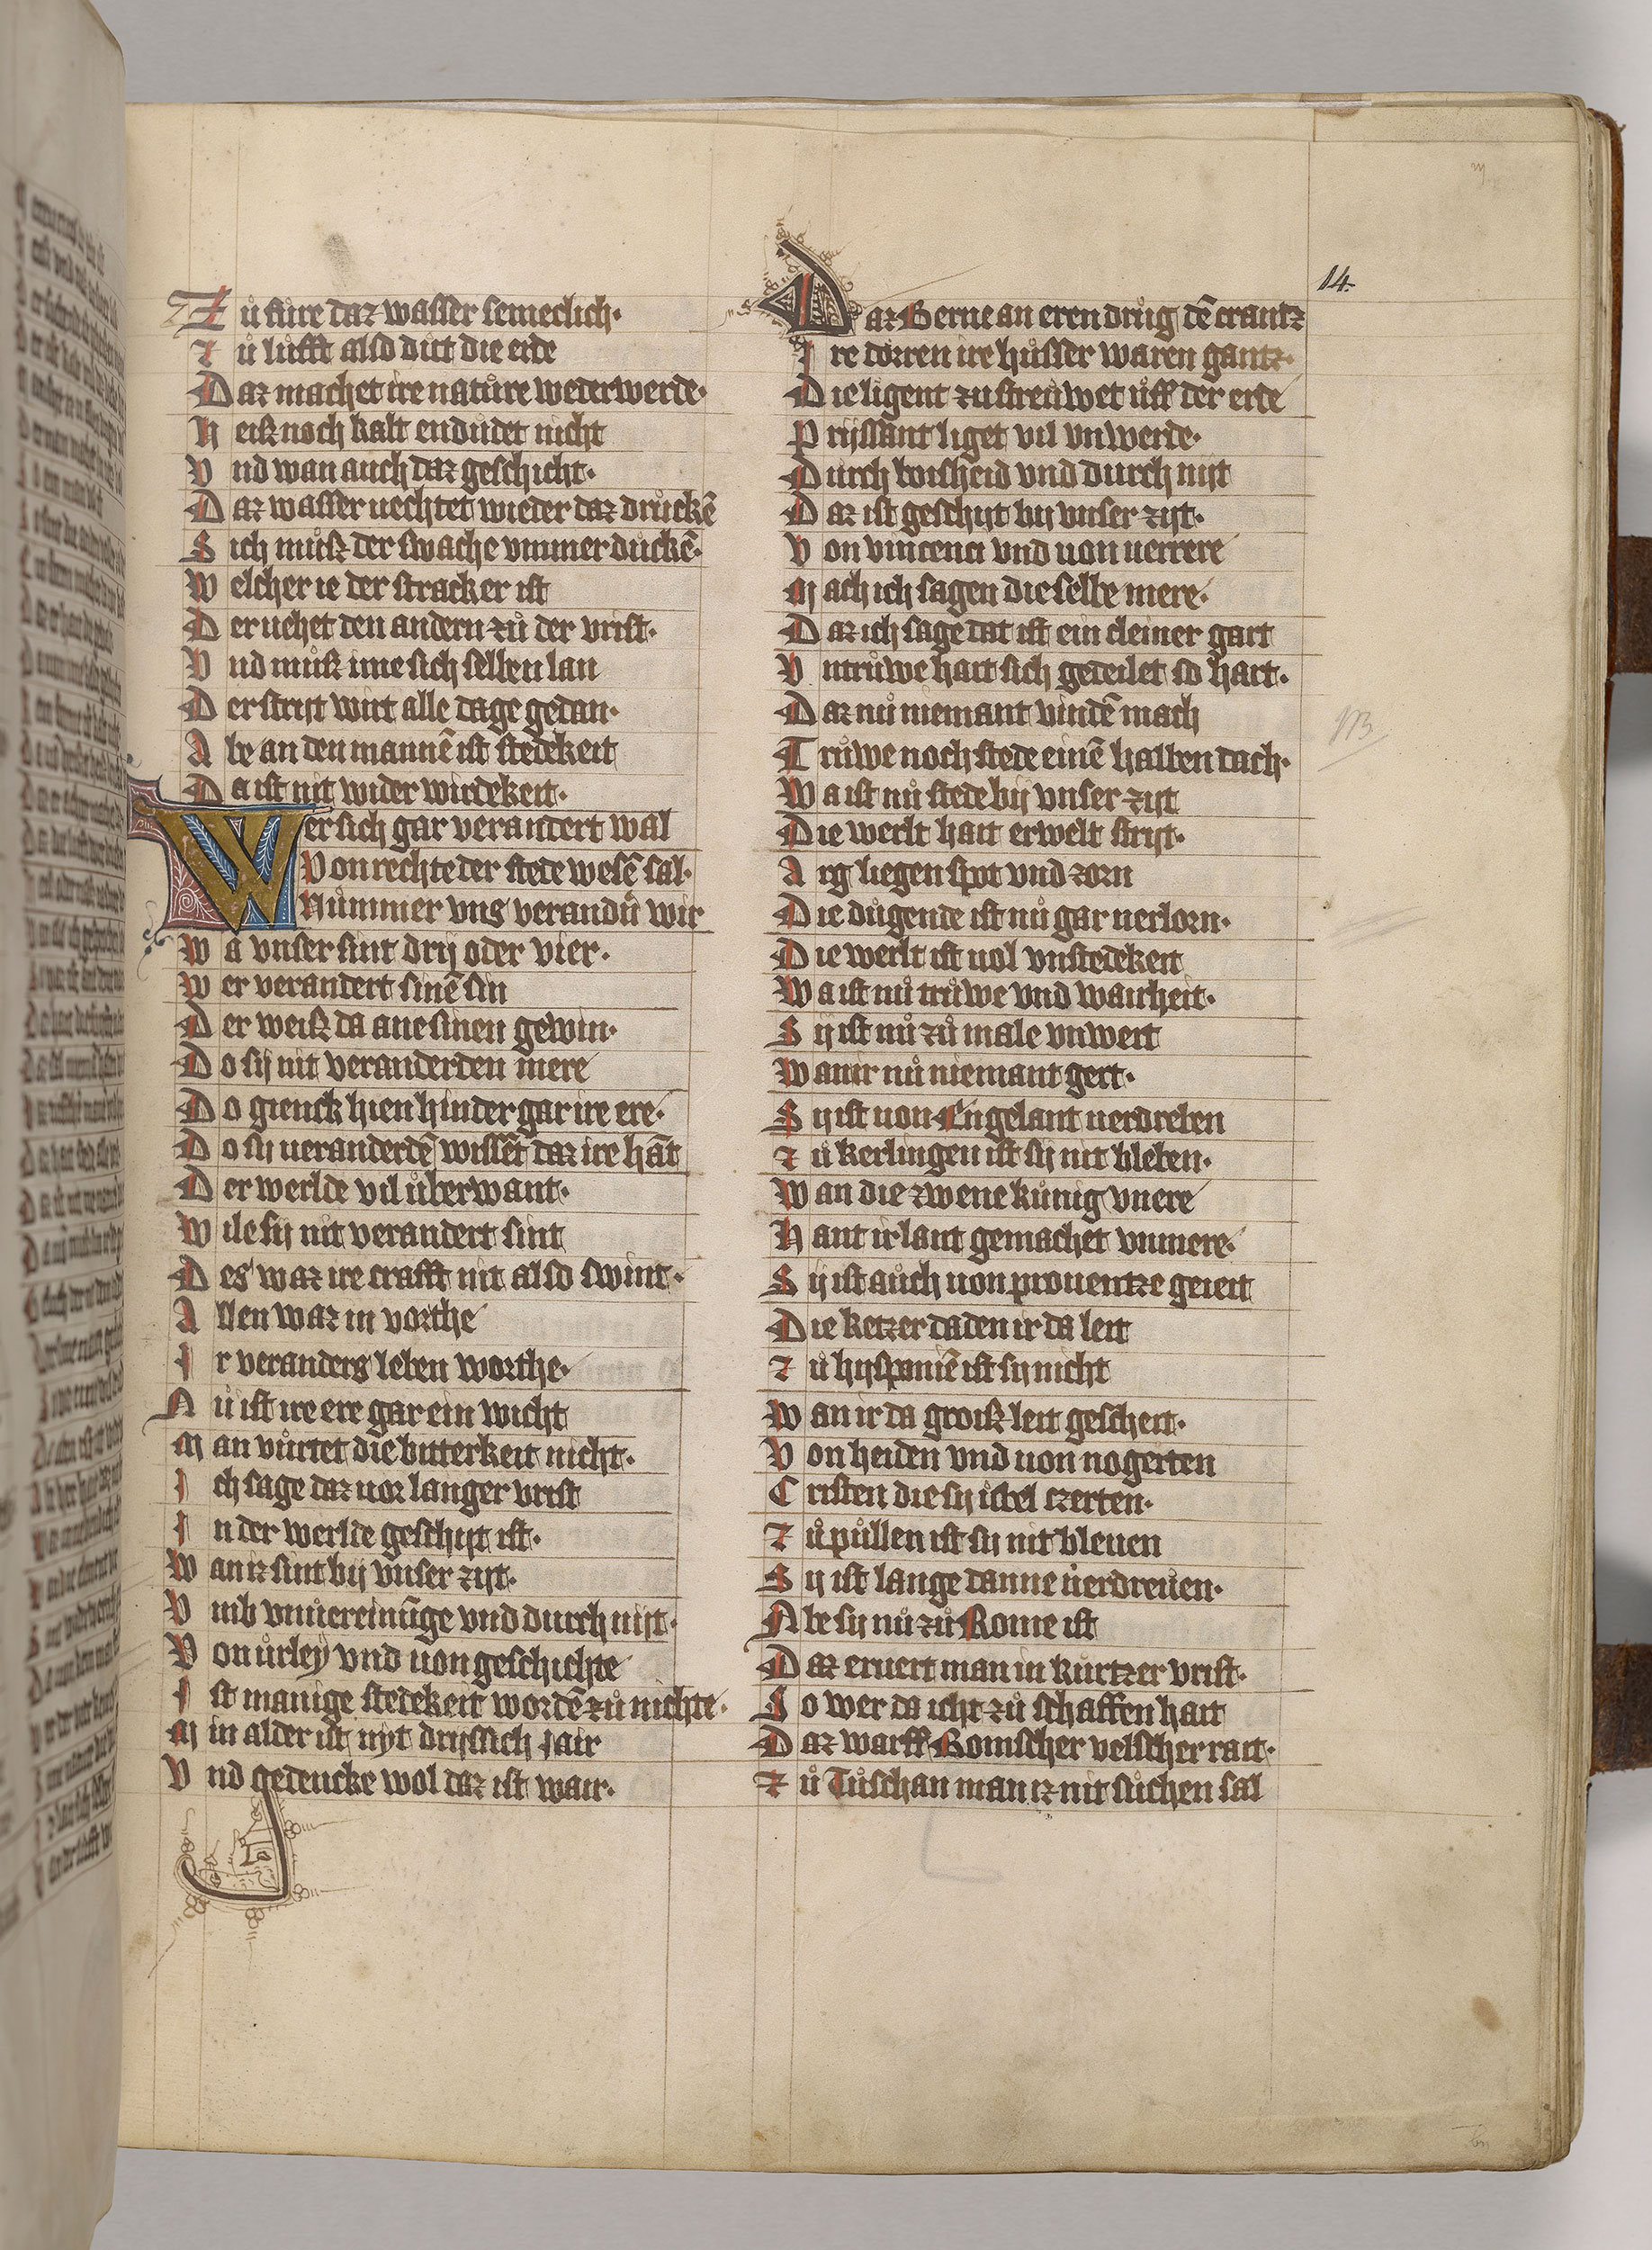 14.
Zů fure daz wasser semeclich·
Zu lůfft also dut die erde
Daz machet ire natůre wederwerde·
Heiß noch kalt endudet nicht
Vnd wan auch daz geschicht·
Daz wasser uechtet wieder daz druckē
Sich můß der swache ummer duckē·
Welcher ie der stracker ist
Der uehet den andern zů der vrist·
Vnd můß ime sich sellen lan
Der strijt wirt alle dage gedan·
Abe an den mannē ist stedekeit
Da ist nit wider wirdekeit·
Wer sich gar verandert wal
Von rechte der stede wesē sal·
Nůmmer vns verandů wir
Wa vnser sint drij oder vier·
Wer verandert sinē sin
Der weiß da ane sinen gewin·
Do sij nit veranderden mere
Do gienck hien hinder gar ire ere·
Do sij veranderdē wissēt daz ire hāt
Der werlde vil ůberwant·
Wile sij nit verandert sint
Des waz ire crafft nit also swint·
Allen waz in vorthe
Ir veranders leben worthe·
Nů ist ire ere gar ein wicht
Man vůrtet die bitterkeit nicht·
Ich sage daz uor langer vrist
In der werlde geschijt ist·
Wan iz sint bij vnser zijt·
Vmb vnuereinūge vnd durch nijt·
Von ůrley vnd uon geschichte
Ist manige stedekeit wordē zů nichte·
Min alder ist nyt drijssich jair
Vnd gedencke wol daz ist wair·
Daz Berne an eren drůg dē crantz
Ire dorren ire hůsser waren gantz·
Die ligent zu streůwet ůff der erde
Prijssant liget vil vnwerde·
Durch boisheid vnd durch nijt
Daz ist geschijt bij vnser zijt·
Von vincenci vnd uon uerrere
Mach ich sagen die selbe mere·
Daz ich sage dat ist ein cleiner gart
Vntrůwe hait sich gedeilet so hart·
Daz nů niemant vindē mach
Trůwe noch stede einē halben dach·
Wa ist nů stede bij vnser zijt
Die werlt hait erwelt strijt·
Arg liegen spot vnd zorn
Die důgende ist nů gar uerlorn·
Die werlt ist uol vnstedekeit
Wa ist nů trůwe vnd wairheit·
Sij ist nů zů male vnwert
Wan ir nů niemant gert·
Sij ist uon Engelant uerdreben
Zů kerlingen ist sij nit bleben·
Wan die zwene kůnig vnere
Hant ir lant gemachet vnmere·
Sij ist aůch uon prouentze geiert
Die ketzer daden ir da leit
Zů hijspaniē ist sij nicht
Wan ir da groiß leit gescheit·
Von heiden vnd uon nogerten
Cristen die sij ůbel czerten·
Zů půllen ist sij nit bleuen
Sij ist lange danne uerdreuen·
Abe sij nů zů Rome ist
Daz eruert man in kůrtzer vrist·
So wer da icht zů schaffen hait
Daz warff Romscher velscher rait·
Zů Tůschan man iz nit sůchen sal